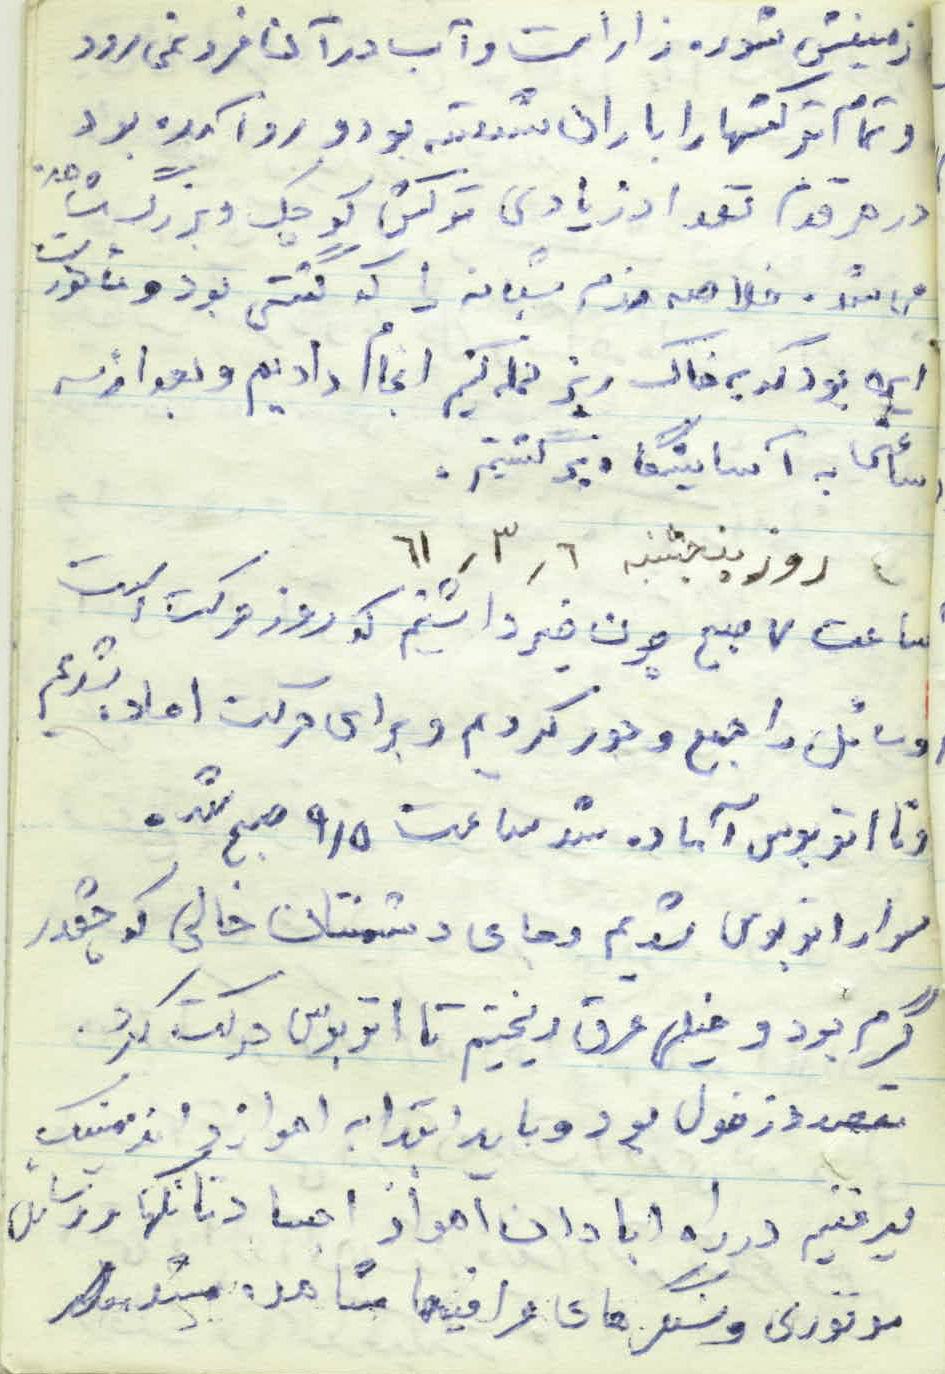 زمینش شوره زار است و آب در آن فرو نمی رود
و تمام ترکشها را باران شسته بود و رو آمده بود
در هر قدم تعداد زیادی ترکش کوچک و بزرگ مشاهده
می شد. خلاصه رزم شبانه را که گشتی بود و
این بود که به خاک ریز حمله کنیم انجام دادیم و بعد از سه
ساعت به آسایشگاه برگشتیم.
روز پنجشنبه ٦ ر ٣ ر ٦١
ساعت ٧ صبح چون خبر داشتیم که روز حرکت است
وسائل را جمع و جور کردیم و برای حرکت اماده شدیم
و تا اتوبوس آماده شد ساعت ٩/٥ صبح شد.
سوار اتوبوس شدیم و جای دشمنتان خالی که چقدر
گرم بود و خیلی عرق ریختیم تا اتوبوس حرکت کرد.
مقصد دزفول بود و باید ابتدا به اهواز و اندیمشک
میرفتیم در راه ابادان اهواز اجساد و تانکها و وسائل
موتوری و سنگرهای عراقیها مشاهده میشد